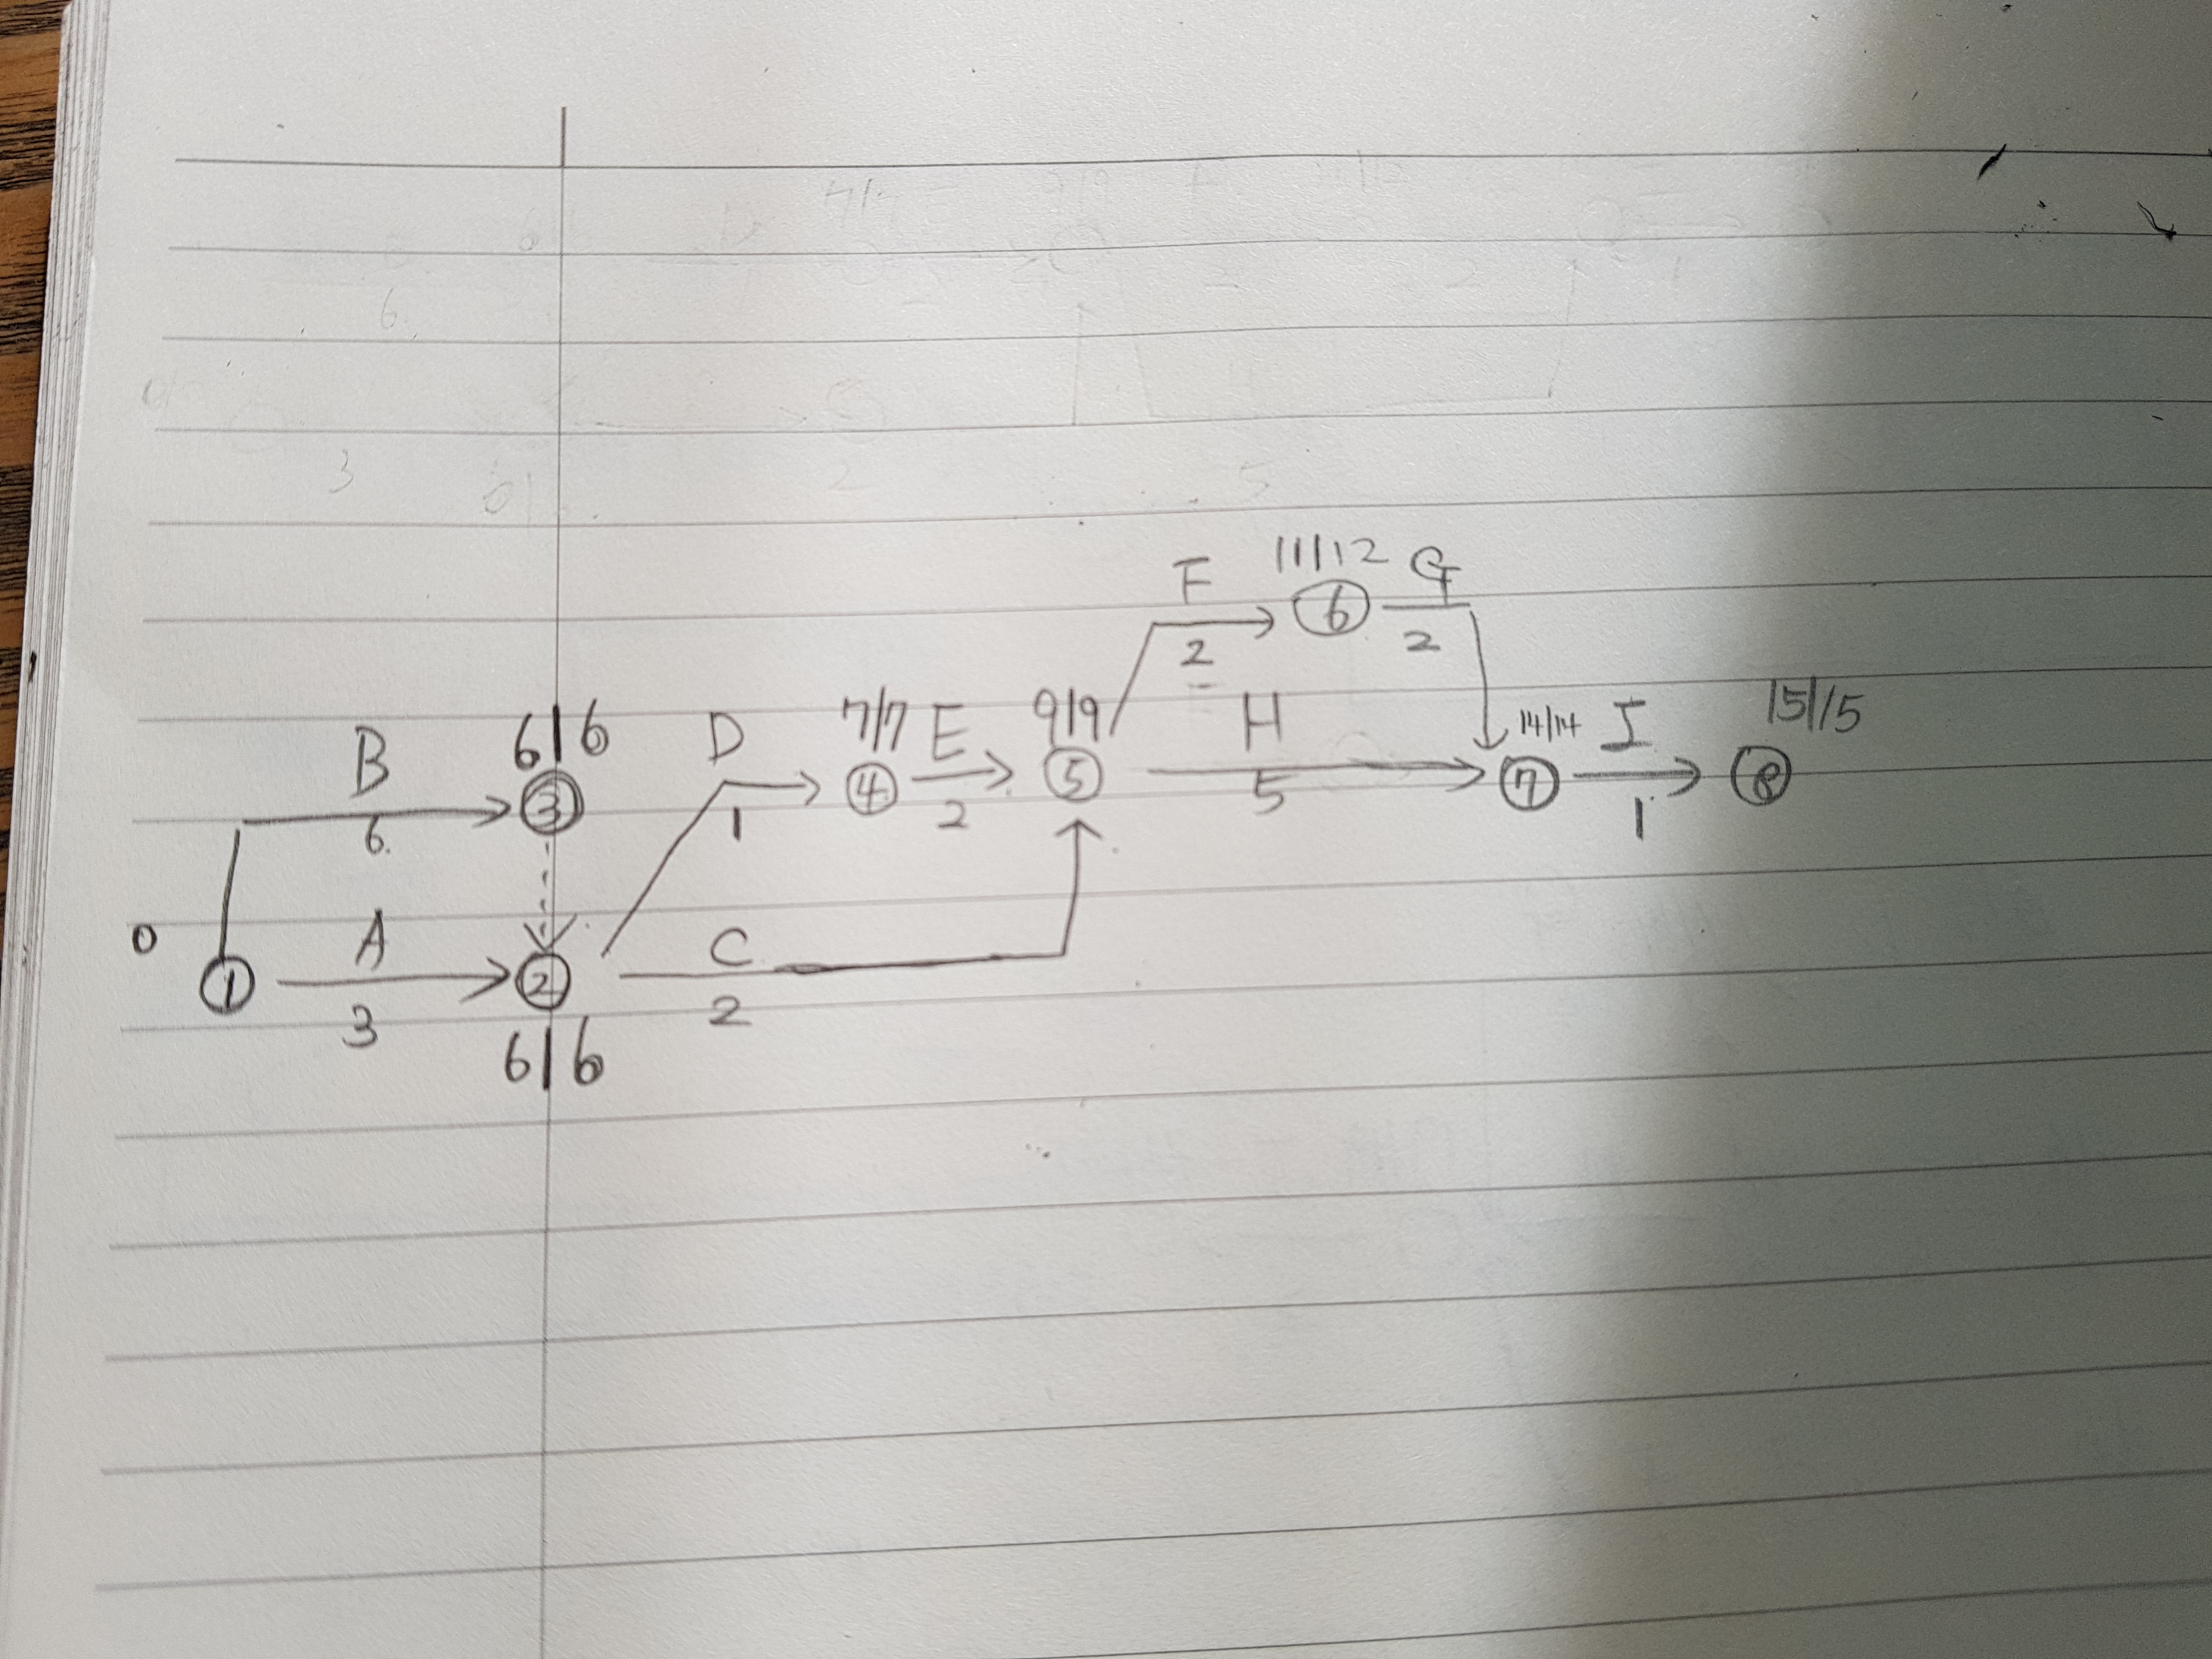 F 11/12 G
6
2 2
B 6|6 D 7/7 E 9|9 H 14/14 I 15/15
3 4 5 7 8
6. 1 2 5 1
0 A C
1 2
3 2
6|6